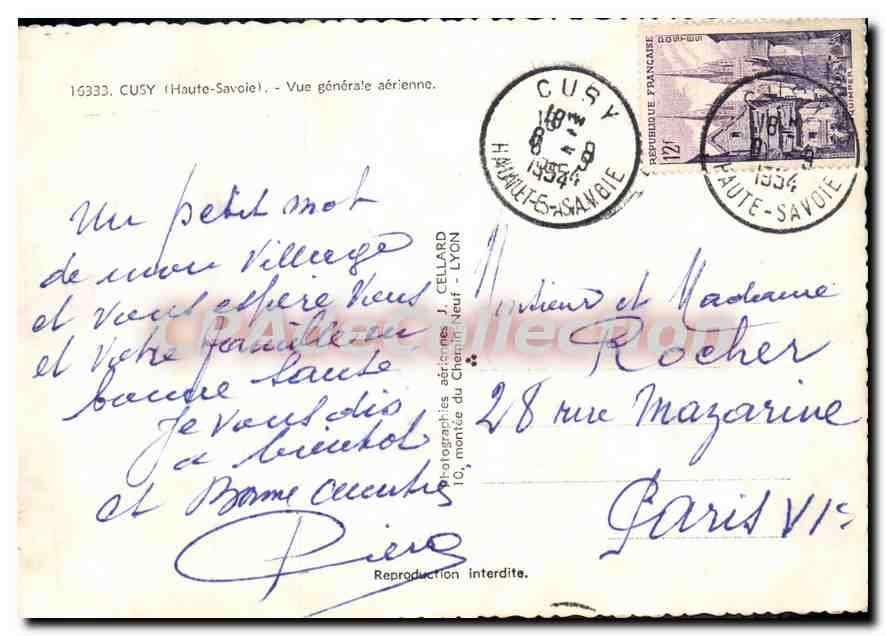 16333. CUSY (Haute-Savoie). - Vue générale aérienne.
Un petit mot
de mon village
et vous espère vous
et votre famille en
bonne santé
je vous dis
a bientot
et Bonne
Reproduction interdite.
Photographies aériennes J. CELLARD
10, montée du Chemin-Neuf - LYON
CUSY
18
1954
HAUTE-SAVOIE
RÉPUBLIQUE FRANÇAISE
POSTES
12f
QUIMPER
1954
HAUTE-SAVOIE
Monsieur et Madame
Rocher
28 rue Mazarine
Paris VIe
CPA de Collection